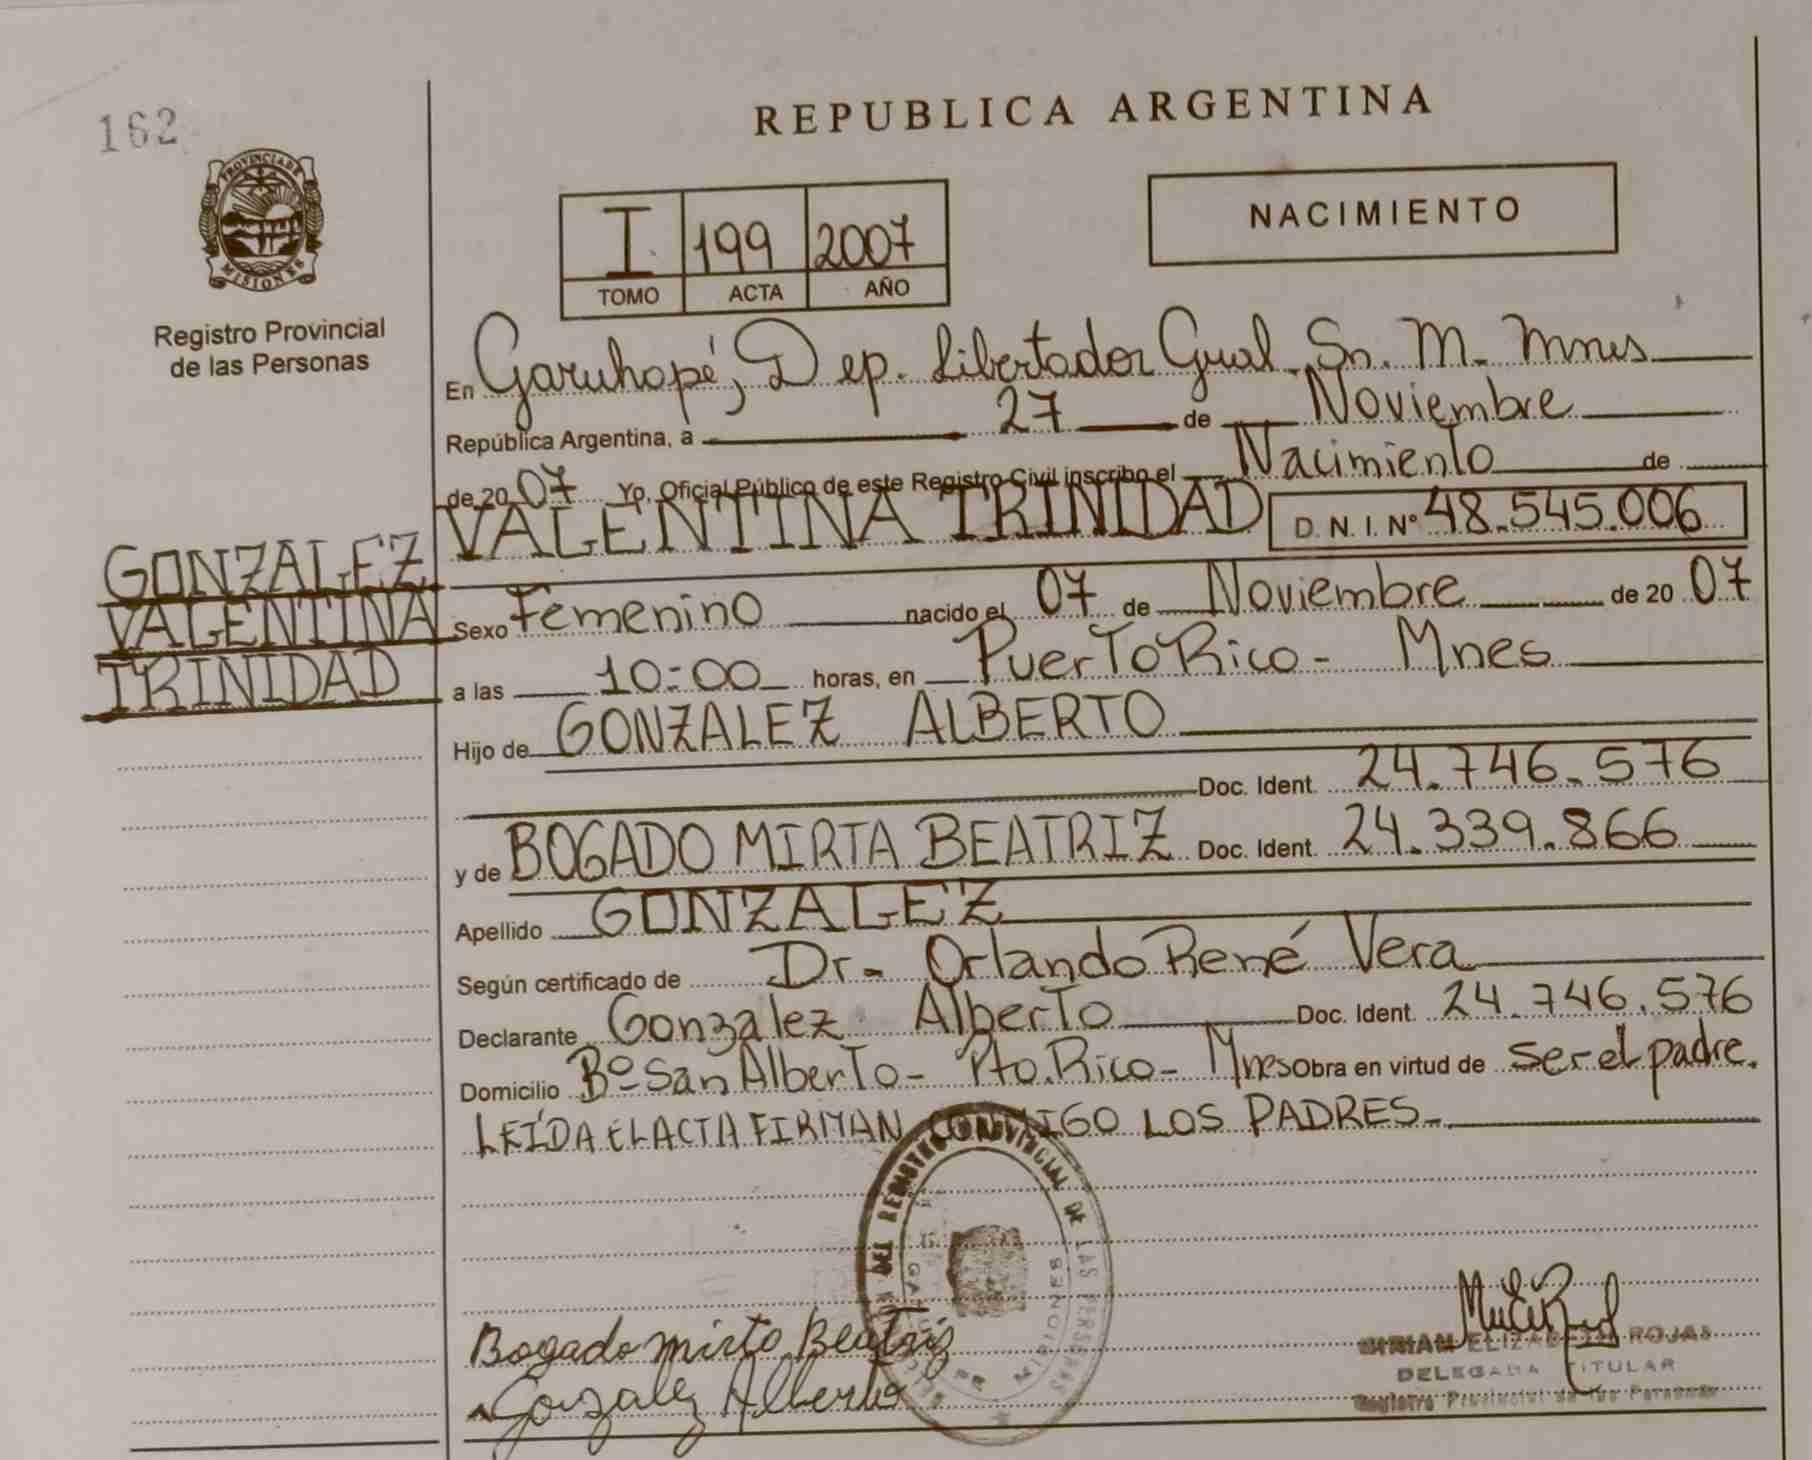 162
REPUBLICA ARGENTINA
PROVINCIA DE
MISIONES
Registro Provincial
de las Personas
I 199 2007
TOMO ACTA AÑO
NACIMIENTO
En Garuhapé, Dep. Libertador Gral. Sn. M. Mnes
República Argentina, a 27 de Noviembre
de 20 07 Yo, Oficial Público de este Registro Civil inscribo el Nacimiento de
VALENTINA TRINIDAD D. N. I. Nº 48.545.006
GONZALEZ
VALENTINA
TRINIDAD
Sexo Femenino nacido el 07 de Noviembre de 20 07
a las 10:00 horas, en Puerto Rico - Mnes
Hijo de GONZALEZ ALBERTO
Doc. Ident. 24.746.576
y de BOGADO MIRTA BEATRIZ Doc. Ident. 24.339.866
Apellido GONZALEZ
Según certificado de Dr. Orlando René Vera
Declarante Gonzalez Alberto Doc. Ident. 24.746.576
Domicilio Bº San Alberto - Pto. Rico - Mnes Obra en virtud de ser el padre.
LEÍDA EL ACTA FIRMAN CONMIGO LOS PADRES.-
DEL REGISTRO PROVINCIAL DE LAS PERSONAS
MISIONES
Bogado Mirta Beatriz
Gonzalez Alberto
MIRIAN ELIZABETH ROJAS
DELEGADA TITULAR
Registro Provincial de las Personas